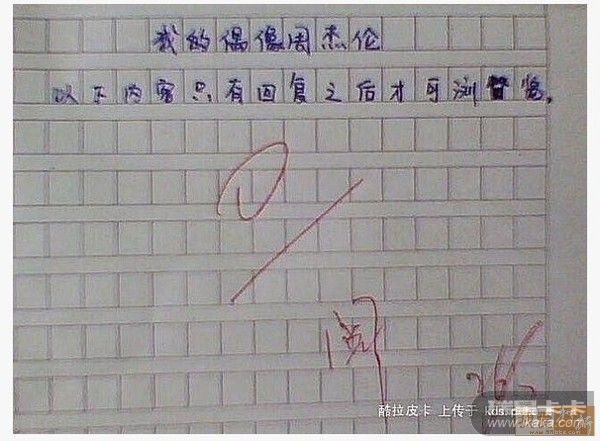 我的偶像周杰伦
以下内容只有回复之后才可浏览。
阅
酷拉皮卡 上传于 kds.
www.ikaka.com